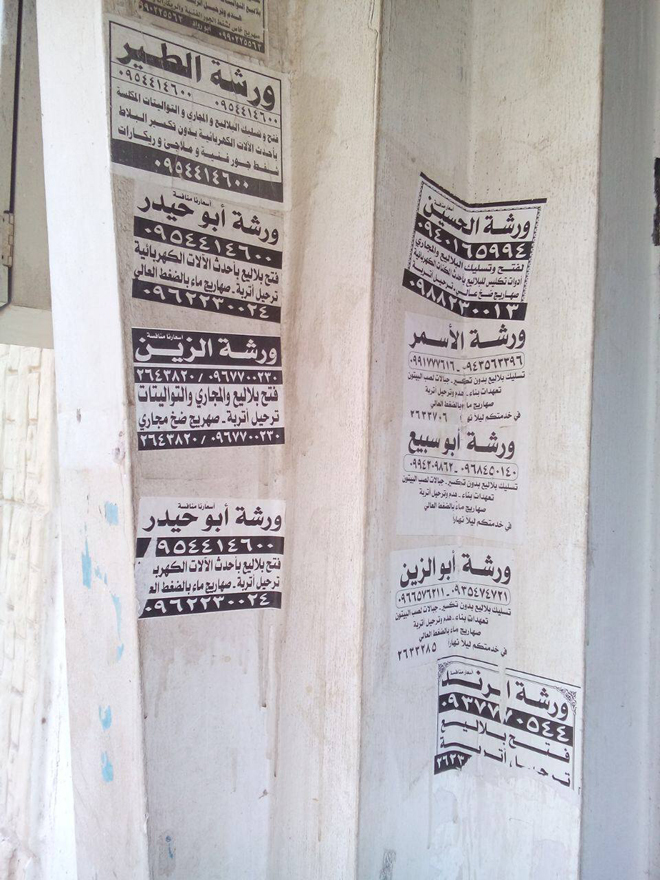 ٠٩٩٠٢٢٥٥٦٣
ورشة الطير
٠٩٥٤٤١٤٦٠٠ ٠٩٥٤٤١٤٦٠٠
فتح و تسليك البلاليع و المجاري و التواليتات المكلسة
بأحدث الآلات الكهربائية بدون تكسير البلاط
شفط جور فنية و ملاجئ و ريكارات
٠٩٥٤٤١٤٦٠٠
أسعارنا منافسة
ورشة أبو حيدر
٠٩٥٤٤١٤٦٠٠
فتح بلاليع بأحدث الآلات الكهربائية
ترحيل أتربة ـ صهاريج ماء بالضغط العالي
٠٩٦٢٢٣٠٠٢٤
أسعارنا منافسة
ورشة الزين
٢٦٤٣٨٢٠ / ٠٩٦٧٧٠٠٢٣٠
فتح بلاليع والمجاري والتواليتات
ترحيل أتربة ـ صهريج ضخ مجاري
٢٦٤٣٨٢٠ / ٠٩٦٧٧٠٠٢٣٠
أسعارنا منافسة
ورشة أبو حيدر
٩٥٤٤١٤٦٠٠
فتح بلاليع بأحدث الآلات الكهربـ
ترحيل أتربة ـ صهاريج ماء بالضغط العا
٠٩٦٢٢٣٠٠٢٤
أسعار منافسة
ورشة الحسين
٠٩٤٠١٦٥٩٩٤
لفتح وتسليك البلاليع والمجاري
أدوات تكليس للبلاليع بأحدث المكنات الكهربائية
صهاريج ضخ عالي ـ ترحيل أتربة
٠٩٨٨٢٣٠٠١٣
ورشة الأسمر
٠٩٤٣٥٦٣٣٩٦ ـ ٠٩٩١٧٧٧٦١٦
تسليك بلاليع بدون تكسير ـ جبالات لصب البيتون
تعهدات بناء ـ هدم وترحيل أتربة
صهاريج ماء بالضغط العالي
في خدمتكم ليلا نها ٢٦٣٣٧٠٦
ورشة أبو سبيع
٠٩٦٨٤٥٠١٤٠ ـ ٠٩٩٤٢٠٩٨٦٢
تسليك بلاليع بدون تكسير ـ جبالات لصب البيتون
تعهدات بناء ـ هدم وترحيل أتربة
صهاريج ماء بالضغط العالي
في خدمتكم ليلا نهارا
ورشة أبو الزين
٠٩٣٥٤٧٤٧٢١ ـ ٠٩٦٦٥٧٦٢١١
تسليك بلاليع بدون تكسير ـ جبالات لصب البيتون
تعهدات بناء ـ هدم وترحيل أتربة
صهاريج ماء بالضغط العالي
في خدمتكم ليلا نهارا ٢٦٣٣٢٨٥
أسعار منافسة
ورشة الرند
٠٩٣٧٧٧٠٥٤٤
فتح بلاليع
ترحيل أتربة
٢٦٢٣